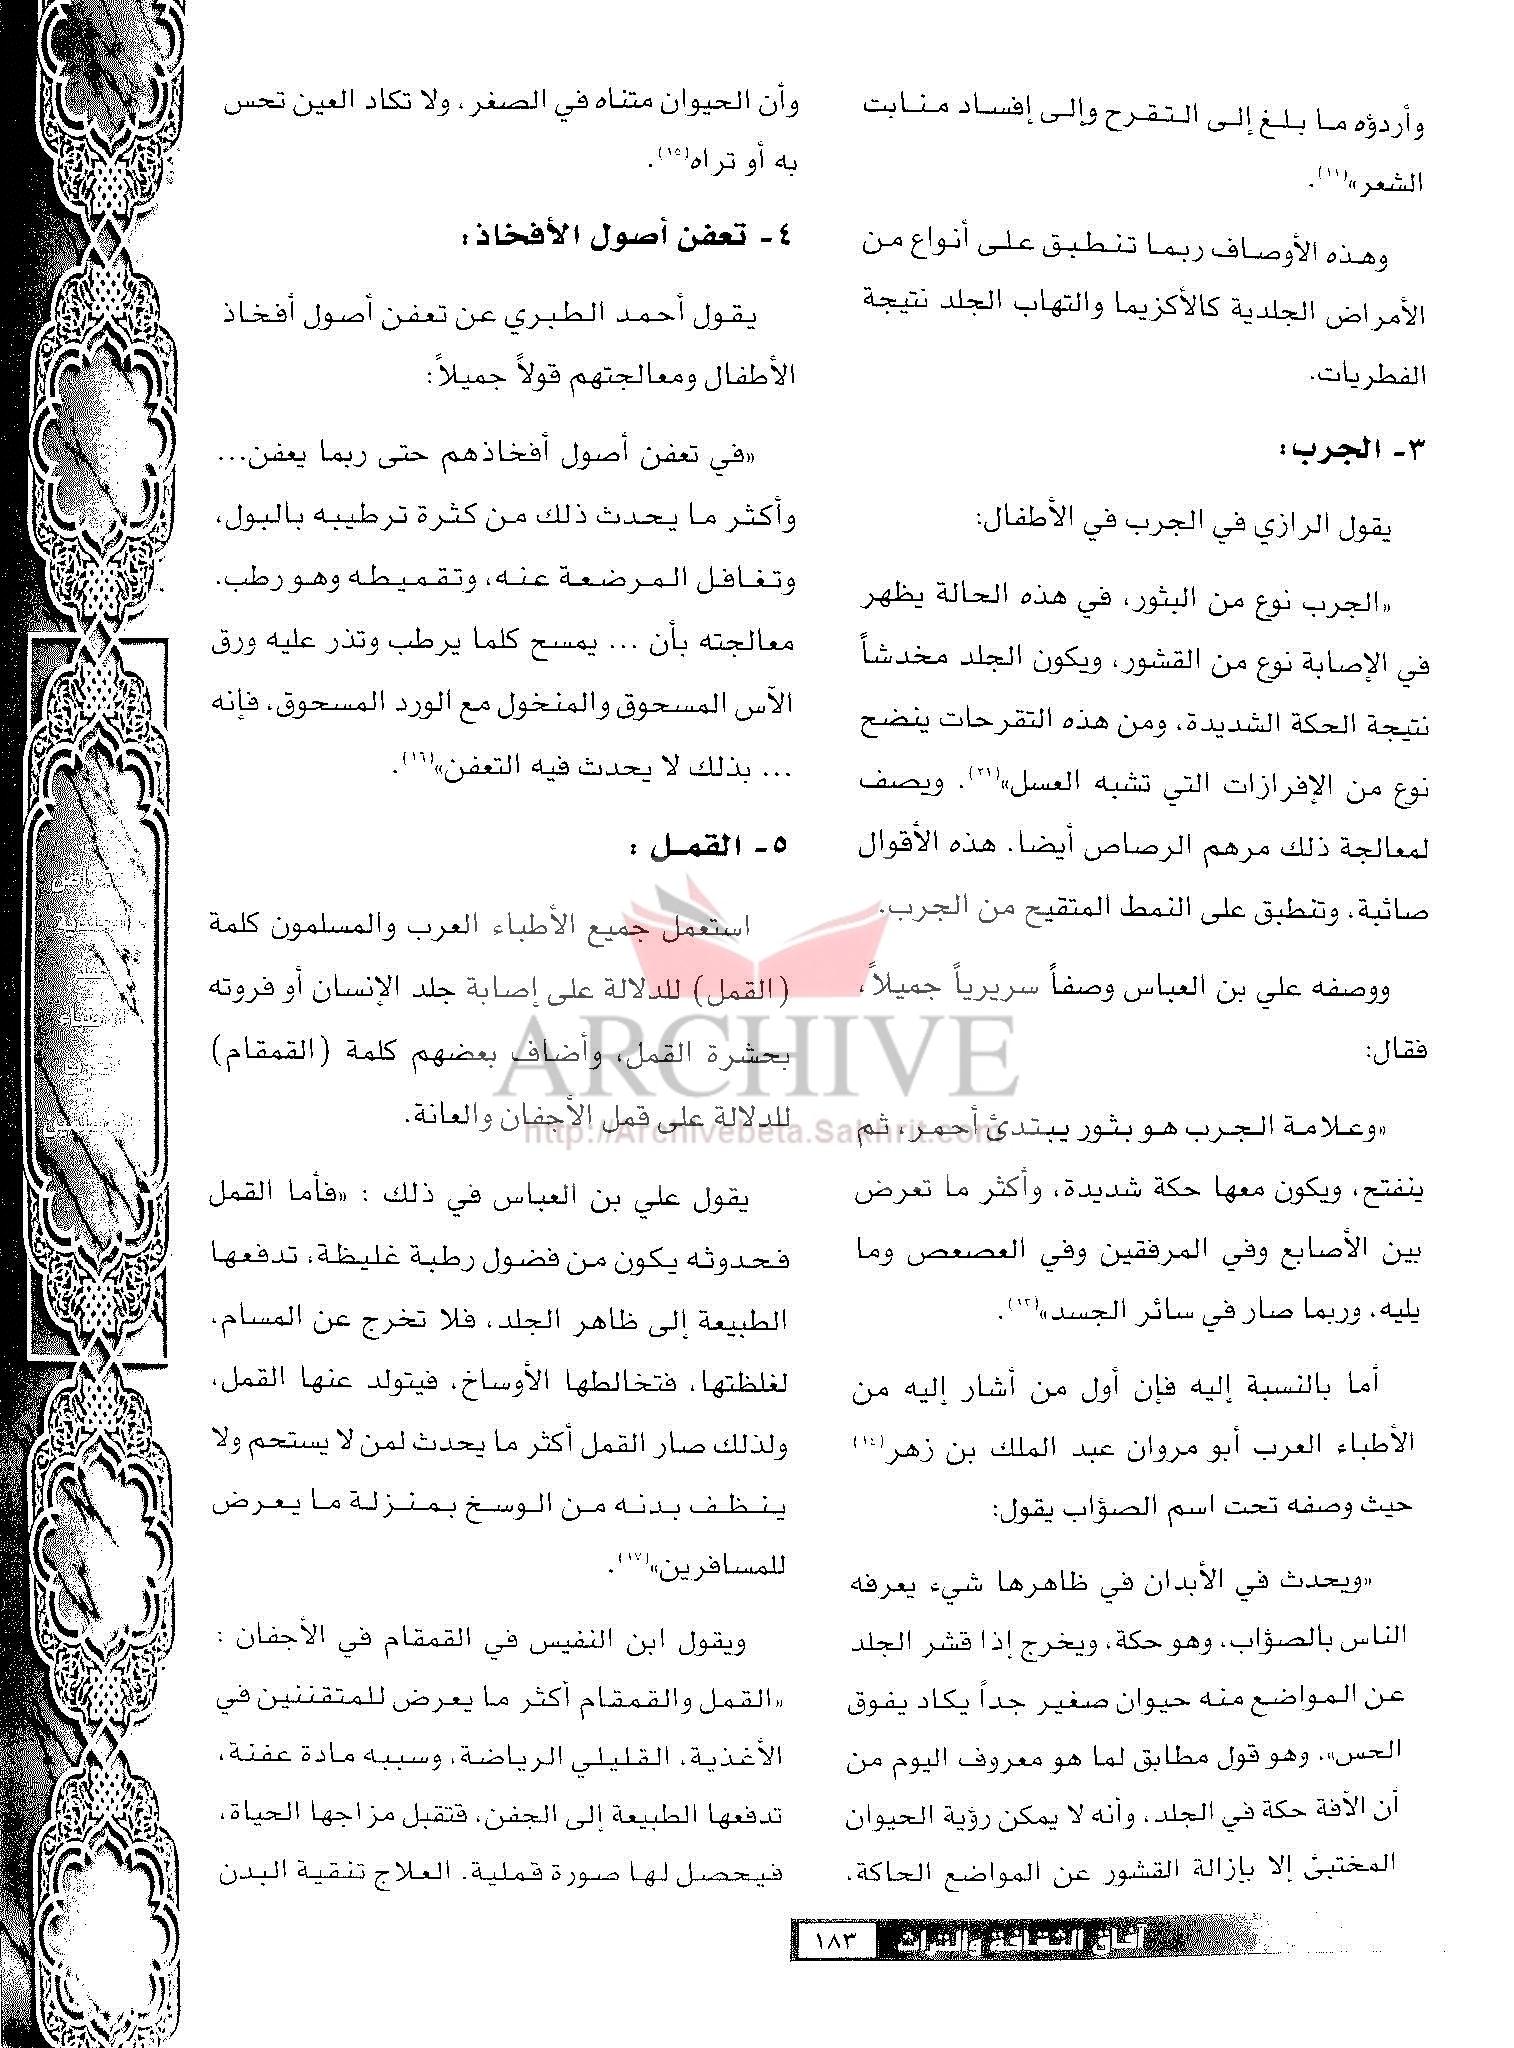 وأردؤه ما بلغ إلى التقرح وإلى إفساد منابت
الشعر»(١١).
وهذه الأوصاف ربما تنطبق على أنواع من
الأمراض الجلدية كالأكزيما والتهاب الجلد نتيجة
الفطريات.
٣- الجرب:
يقول الرازي في الجرب في الأطفال:
«الجرب نوع من البثور، في هذه الحالة يظهر
في الإصابة نوع من القشور، ويكون الجلد مخدشاً
نتيجة الحكة الشديدة، ومن هذه التقرحات ينضح
نوع من الإفرازات التي تشبه العسل»(٢١). ويصف
لمعالجة ذلك مرهم الرصاص أيضا. هذه الأقوال
صائبة، وتنطبق على النمط المتقيح من الجرب.
ووصفه علي بن العباس وصفاً سريرياً جميلاً،
فقال:
«وعلامة الجرب هو بثور يبتدئ أحمر، ثم
ينفتح، ويكون معها حكة شديدة، وأكثر ما تعرض
بين الأصابع وفي المرفقين وفي العصعص وما
يليه، وربما صار في سائر الجسد»(١٣).
أما بالنسبة إليه فإن أول من أشار إليه من
الأطباء العرب أبو مروان عبد الملك بن زهر(١٤)
حيث وصفه تحت اسم الصؤاب يقول:
«ويحدث في الأبدان في ظاهرها شيء يعرفه
الناس بالصؤاب، وهو حكة، ويخرج إذا قشر الجلد
عن المواضع منه حيوان صغير جداً يكاد يفوق
الحس»، وهو قول مطابق لما هو معروف اليوم من
أن الأفة حكة في الجلد، وأنه لا يمكن رؤية الحيوان
المختبئ إلا بإزالة القشور عن المواضع الحاكة،
وأن الحيوان متناه في الصغر، ولا تكاد العين تحس
به أو تراه(١٥).
٤- تعفن أصول الأفخاذ:
يقول أحمد الطبري عن تعفن أصول أفخاذ
الأطفال ومعالجتهم قولاً جميلاً:
«في تعفن أصول أفخاذهم حتى ربما يعفن...
وأكثر ما يحدث ذلك من كثرة ترطيبه بالبول،
وتغافل المرضعة عنه، وتقميطه وهو رطب.
معالجته بأن ... يمسح كلما يرطب وتذر عليه ورق
الآس المسحوق والمنخول مع الورد المسحوق، فإنه
... بذلك لا يحدث فيه التعفن»(١٦).
٥- القمل :
استعمل جميع الأطباء العرب والمسلمون كلمة
(القمل) للدلالة على إصابة جلد الإنسان أو فروته
بحشرة القمل، وأضاف بعضهم كلمة (القمقام)
للدلالة على قمل الأجفان والعانة.
يقول علي بن العباس في ذلك : «فأما القمل
فحدوثه يكون من فضول رطبة غليظة، تدفعها
الطبيعة إلى ظاهر الجلد، فلا تخرج عن المسام،
لغلظتها، فتخالطها الأوساخ، فيتولد عنها القمل،
ولذلك صار القمل أكثر ما يحدث لمن لا يستحم ولا
ينظف بدنه من الوسخ بمنزلة ما يعرض
للمسافرين»(١٧).
ويقول ابن النفيس في القمقام في الأجفان :
«القمل والقمقام أكثر ما يعرض للمتقننين في
الأغذية، القليلي الرياضة، وسببه مادة عفنة،
تدفعها الطبيعة إلى الجفن، فتقبل مزاجها الحياة،
فيحصل لها صورة قملية. العلاج تنقية البدن
ARCHIVE
http://Archivebeta.Sakhrit.com
آفاق الثقافة والتراث ١٨٣